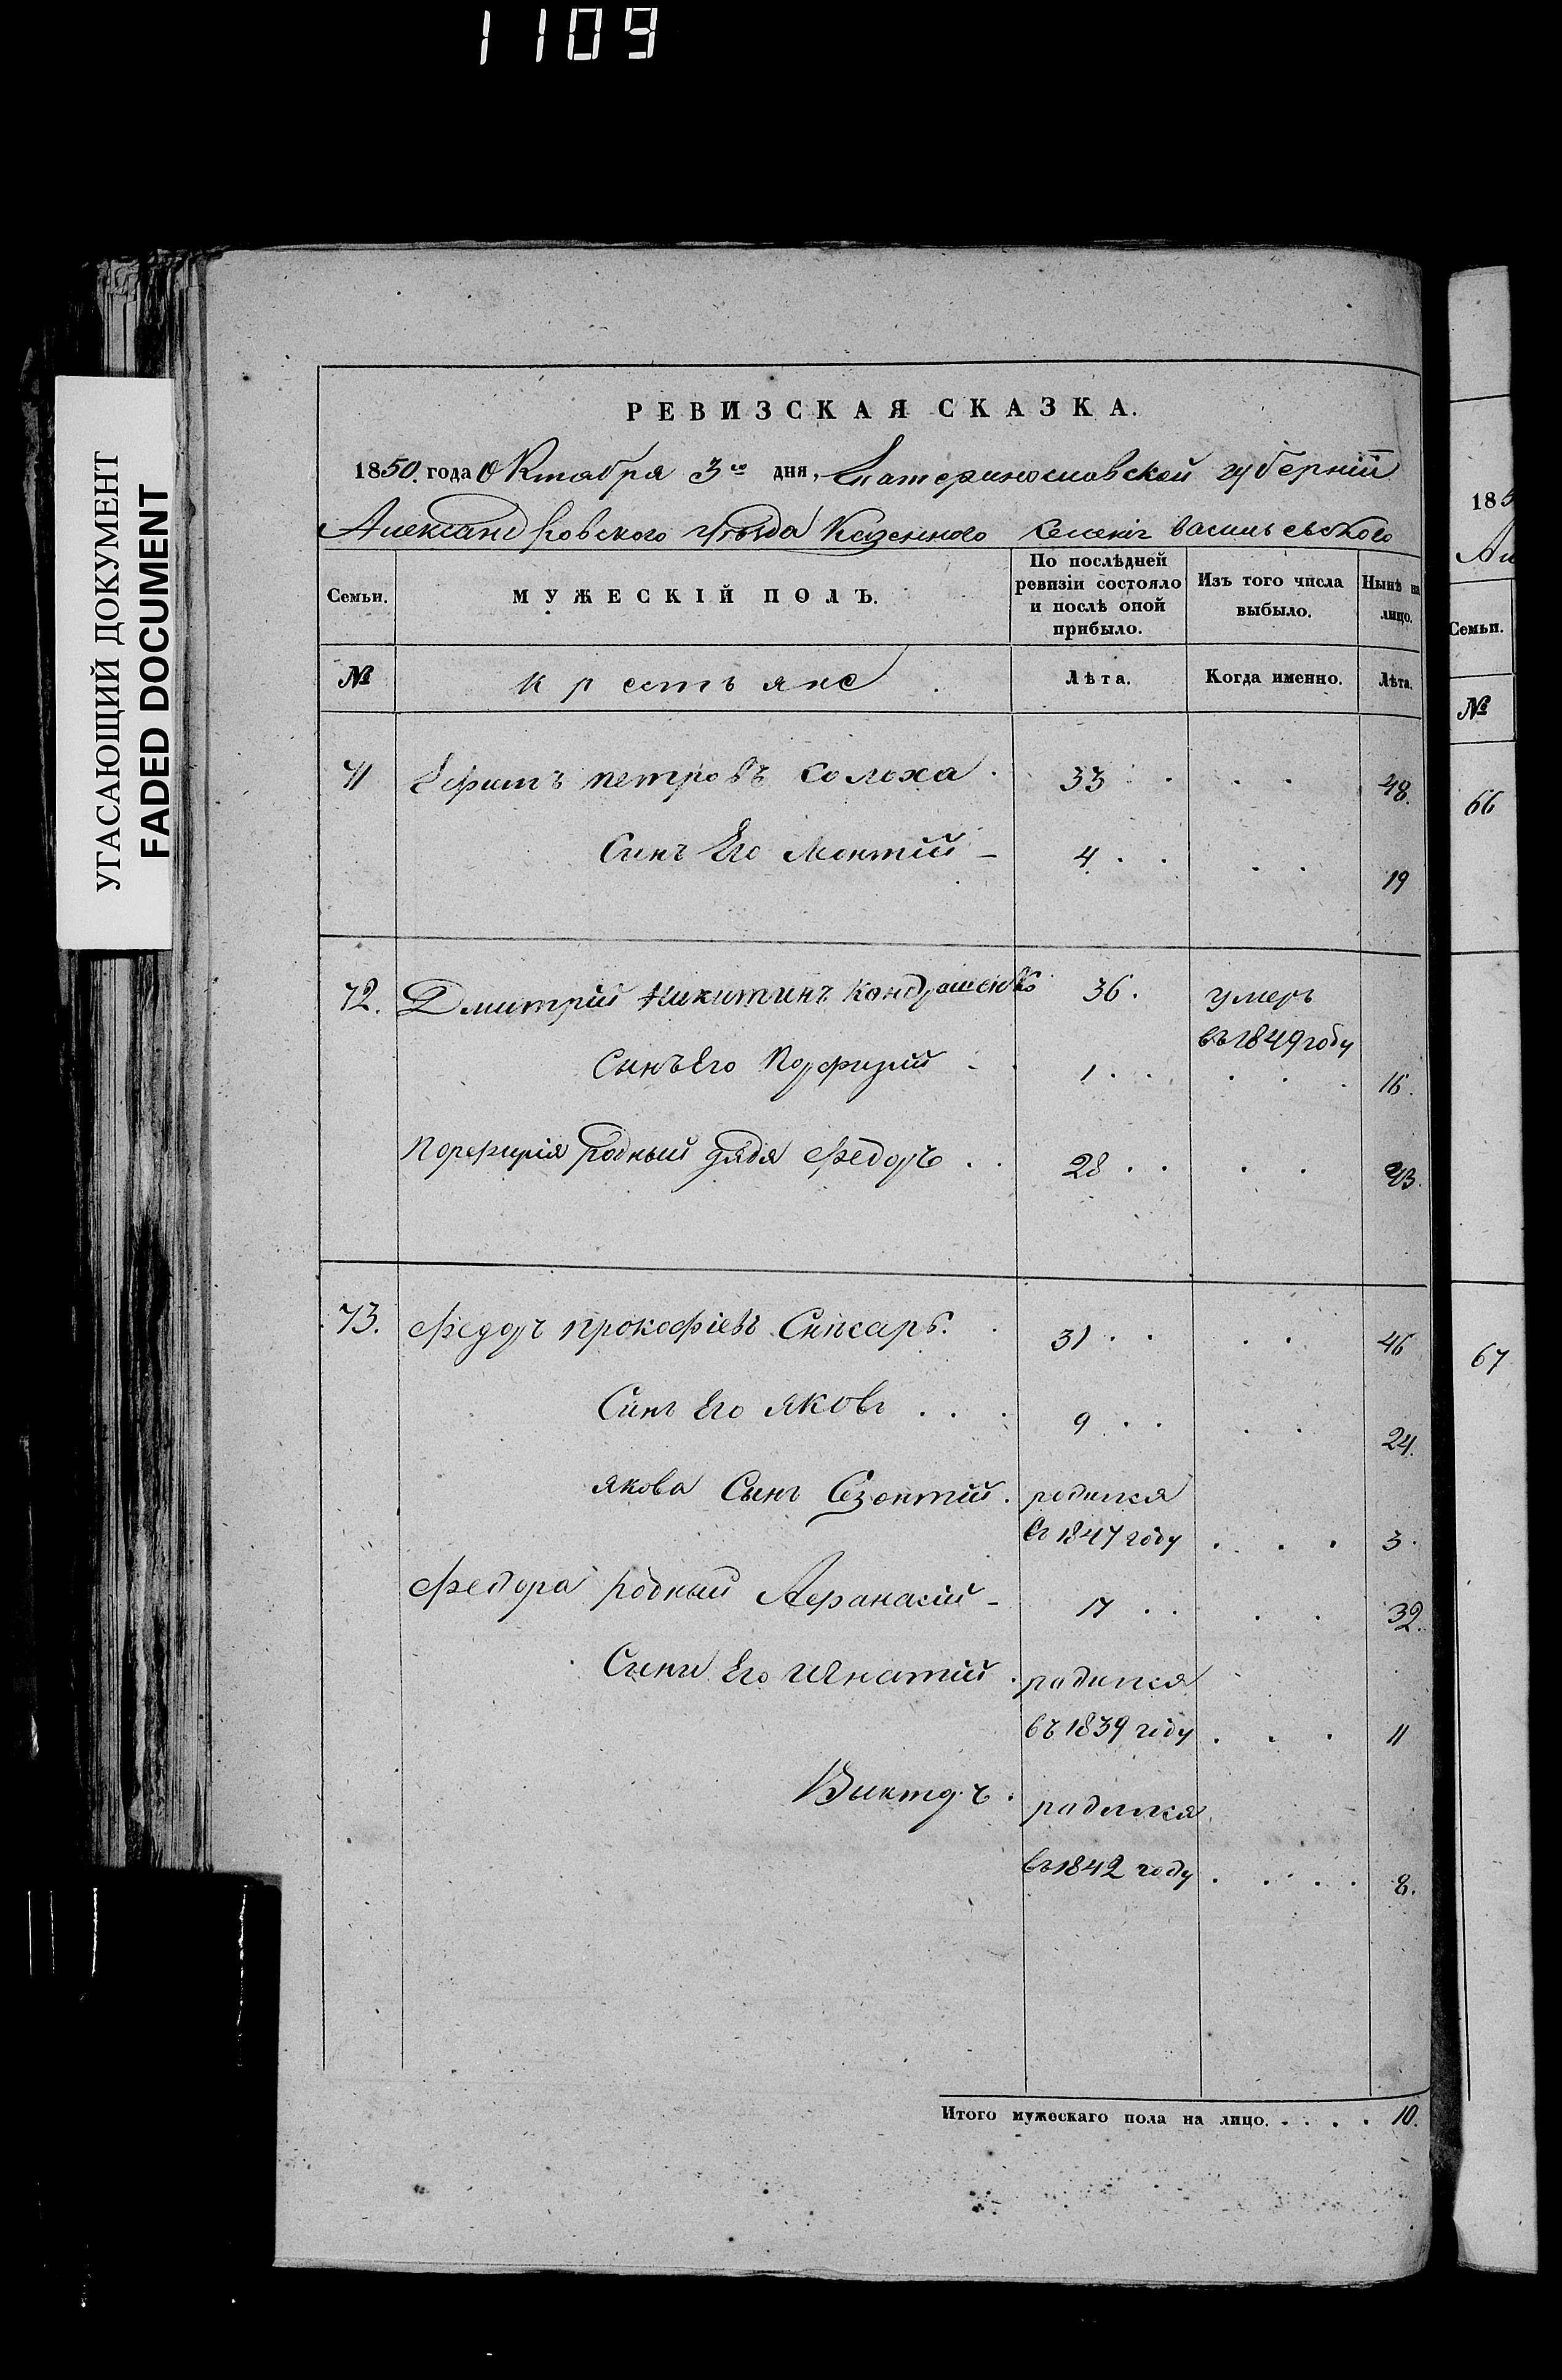 1109
УГАСАЮЩИЙ ДОКУМЕНТ
FADED DOCUMENT
РЕВИЗСКАЯ СКАЗКА.
1850. года Октября 3го дня, Екатеринославской губерніи
Александровского уѣзда Казенного Селенія васильевского
Семьи. МУЖЕСКІЙ ПОЛЪ. По послѣдней ревизіи состояло и послѣ оной прибыло. Изъ того числа выбыло. Нынѣ на лицо.
№ крестьяне Лѣта. Когда именно. Лѣта.
71 Ефимъ петровъ Солоха 33 48.
Синъ Его Леонтій 4 19
72. Дмитрій Никитинъ Кондрашенко 36. умеръ
въ 1849 году
Сынъ Его Порфирій 1 16.
Порфирія родный дядя Федоръ 28 43.
73. Федоръ прокофіевъ Слѣсарь. 31 46
Синъ Его яковъ 9 24.
якова Сынъ Созонтій. родился
въ 1847 году 3.
Федора родный Афанасій 17 32.
Сыни Его Игнатий родился
въ 1839 году 11
Викторъ родился
въ 1842 году 8.
Итого мужескаго пола на лицо. 10.
185
Ал
Семьи.
№
66
67